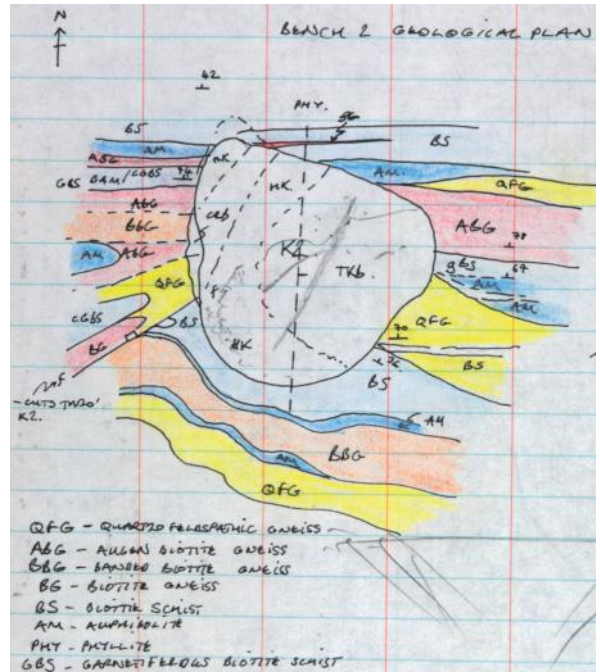 N
BENCH 2 GEOLOGICAL PLAN
42
PHY.
56
BS
BS
AM
AM
ABG
HK
HK.
QFG
GBS BAM/CGBS
74
ABG
CRB
ABG
BBG
K2
78
AM
ABG
TKb.
gBS
67
AM
QFG
AM
CGBS
BS
HK
70
QFG
BG
BS
BS
- CUTS THRO'
K2.
AM
BBG
AM
QFG
QFG - QUARTZO FELDSPATHIC GNEISS
ABG - AUGEN BIOTITE GNEISS
BBG - BANDED BIOTITE GNEISS
BG - BIOTITE GNEISS
BS - BIOTITE SCHIST
AM - AMPHIBOLITE
PHY - PHYLLITE
GBS - GARNETIFEROUS BIOTITE SCHIST